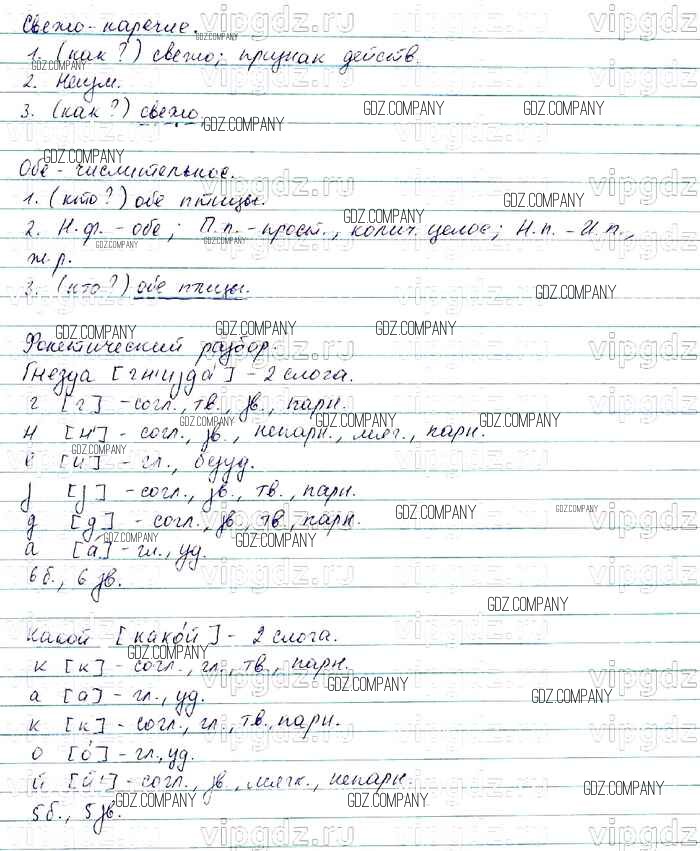 Свежо - наречие.
1. (как?) свежо; признак действ.
2. Неизм.
3. (как?) свежо
Обе - числительное.
1. (кто?) обе птицы.
2. Н.ф. - обе; П.п. - прост., колич. целое; Н.п. - И.п.,
ж.р.
3. (кто?) обе птицы.
Фонетический разбор.
Гнезда [гн'издá] - 2 слога.
г [г] - согл., тв., зв., парн.
н [н'] - согл., зв., непарн., мяг., парн.
е [и] - гл., безуд.
з [з] - согл., зв., тв., парн.
д [д] - согл., зв., тв., парн.
а [á] - гл., уд.
6 б., 6 зв.
Какой [какóй'] - 2 слога.
к [к] - согл., гл., тв., парн.
а [а] - гл., уд.
к [к] - согл., гл., тв., парн.
о [ó] - гл., уд.
й [й'] - согл., зв., мягк., непарн.
5 б., 5 зв.